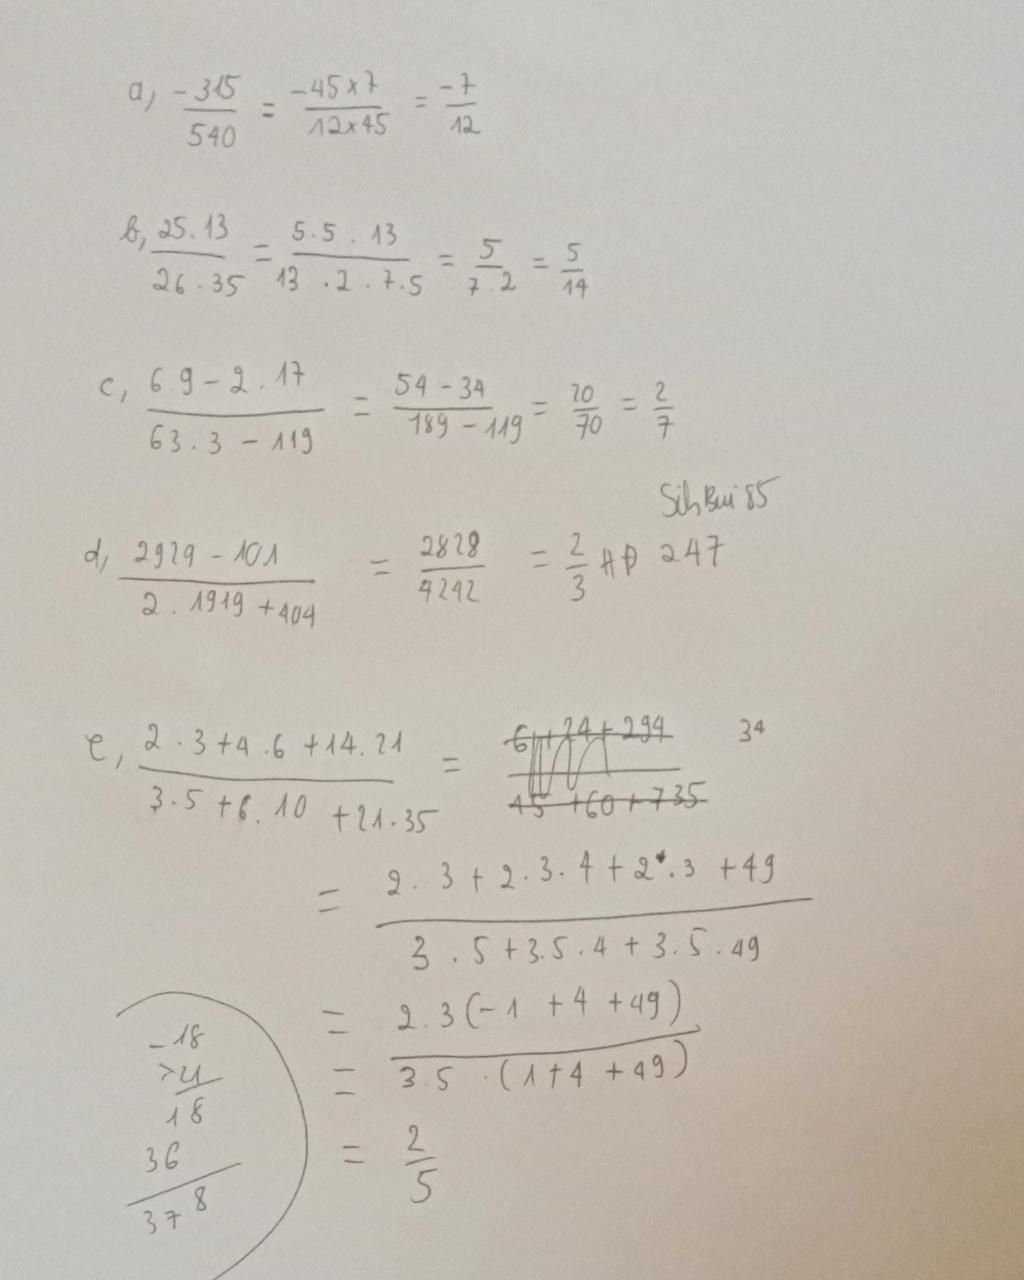 a, -315/540 = -45x7/12x45 = -7/12
b, 25.13/26.35 = 5.5.13/13.2.7.5 = 5/7.2 = 5/14
c, 6.9-2.17/63.3-119 = 54-34/189-119 = 20/70 = 2/7
85
d, 2929-101/2.1919+404 = 2828/4242 = 2/3 247
e, 2.3+4.6+14.21/3.5+6.10+21.35 = 6+24+294/45+60+735 34
= 2.3+2.3.4+2.3+49/3.5+3.5.4+3.5.49
= 2.3(-1+4+49)
= 3.5.(1+4+49)
= 2/5
-18
18
36
378